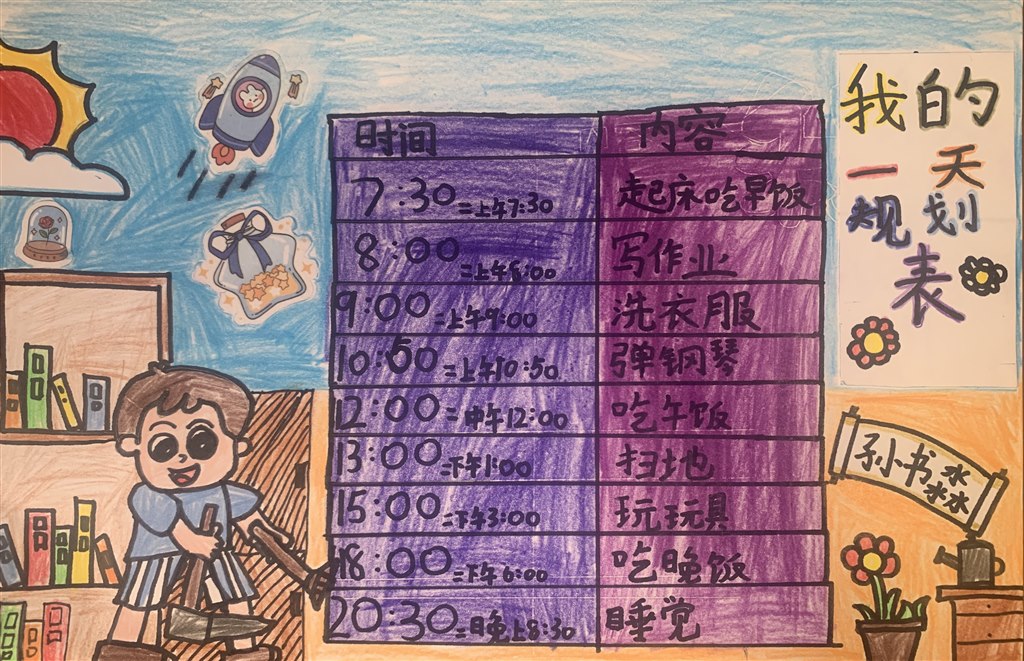 我的
一天
规划
表
时间 内容
7:30=上午7:30 起床吃早饭
8:00=上午8:00 写作业
9:00=上午9:00 洗衣服
10:50=上午10:50 弹钢琴
12:00=中午12:00 吃午饭
13:00=下午1:00 扫地
15:00=下午3:00 玩玩具
18:00=下午6:00 吃晚饭
20:30=晚上8:30 睡觉
孙书淼